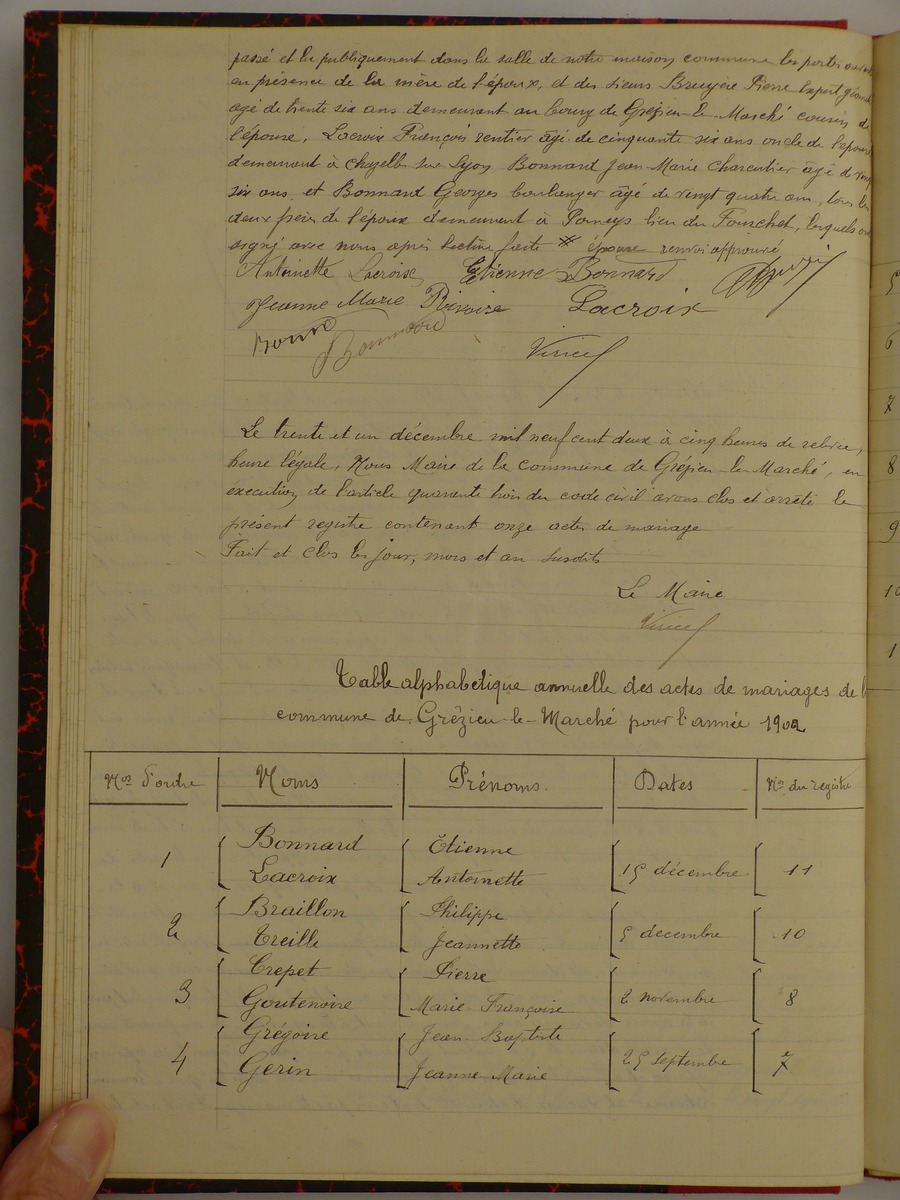 passé et lu publiquement dans la salle de notre maison commune les portes
en présence de la mère de l'époux, et des sieurs Bruyère Pierre Expert
agé de trente six ans demeurant au bourg de Grézieu-le-Marché cousin de
l'épouse, Lacroix François rentier âgé de cinquante six ans oncle de
demeurant à Chazelle sur Lyon Bonnard Jean Marie Charcutier âgé de
six ans et Bonnard Georges boulanger âgé de vingt quatre ans, tous les
deux frères de l'époux demeurant à Pomeys lieu du Fourchet, lesquels
signé avec nous après lecture faite * épouse renvoi approuvé
Antoinette Lacroix Etienne Bonnard
Jeanne Marie Rivoire Lacroix
Bonnard
Le trente et un décembre mil neuf cent deux à cinq heures de relevée,
heure légale, Nous Maire de la commune de Grézieu-le-Marché, en
exécution de l'article quarante trois du code civil avons clos et arrêté le
présent registre contenant onze actes de mariage
Fait et clos les jour, mois et an susdits
Le Maire
Table alphabétique annuelle des actes de mariages de
commune de Grézieu-le-Marché pour l'année 1902
Nos d'ordre Noms Prénoms Dates Nos du registre
1 Bonnard Etienne 15 décembre 11
Lacroix Antoinette
2 Braillon Philippe 5 decembre 10
Treille Jeannette
3 Crepet Pierre 2 novembre 8
Goutenoire Marie Françoise
4 Grégoire Jean Baptiste 25 septembre 7
Gerin Jeanne Marie
5
6
7
8
9
10
1